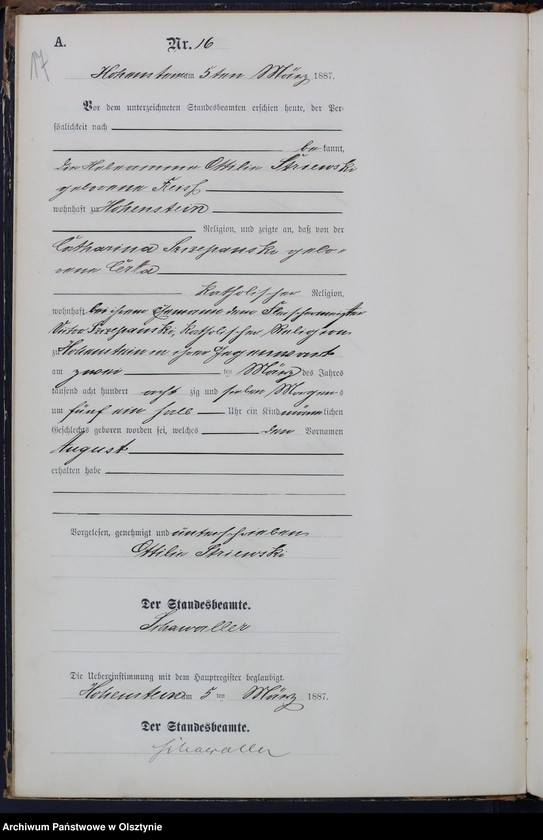 A.
Nr. 16
17
Hohenstein am 5ten März 1887.
Vor dem unterzeichneten Standesbeamten erschien heute, der Per-
sönlichkeit nach
be kannt,
die Hebeamme Ottilie Striewski
geborene
wohnhaft zu Hohenstein
Religion, und zeigte an, daß von der
Catharina Szczepanski gebo-
rene
Katholischer Religion,
wohnhaft bei ihrem Ehemanne dem Fleischermeister
Victor Szczepanski, Katholischer Religion
zu Hohenstein in ihrer Gegenwart
am zwei ten März des Jahres
tausend acht hundert acht zig und sieben Morgens
um fünf ein halb Uhr ein Kind männlichen
Geschlechts geboren worden sei, welches den Vornamen
August
erhalten habe
Vorgelesen, genehmigt und unterschrieben
Ottilie Striewski
Der Standesbeamte.
Schawaller
Die Uebereinstimmung mit dem Hauptregister beglaubigt.
Hohenstein am 5 ten März 1887.
Der Standesbeamte.
Schawaller
Archiwum Państwowe w Olsztynie